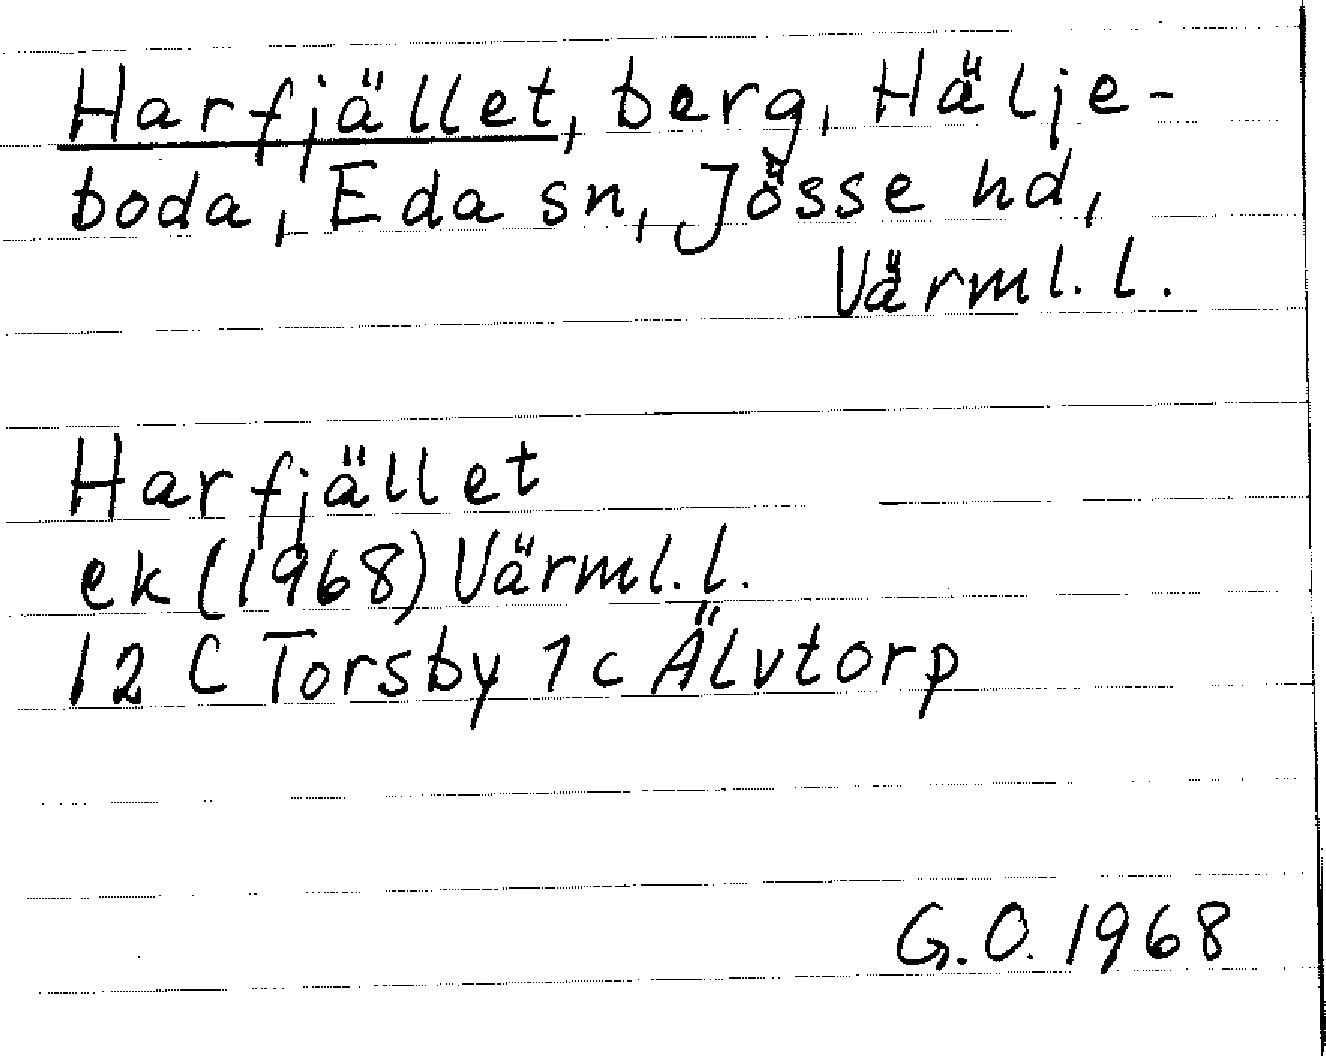 Harfjället, berg, Hälje-
boda, Eda sn, Jösse hd,
Värml. l.
Harfjället
ek (1968) Värml. l.
12 C Torsby 1 c Älvtorp
G. O. 1968